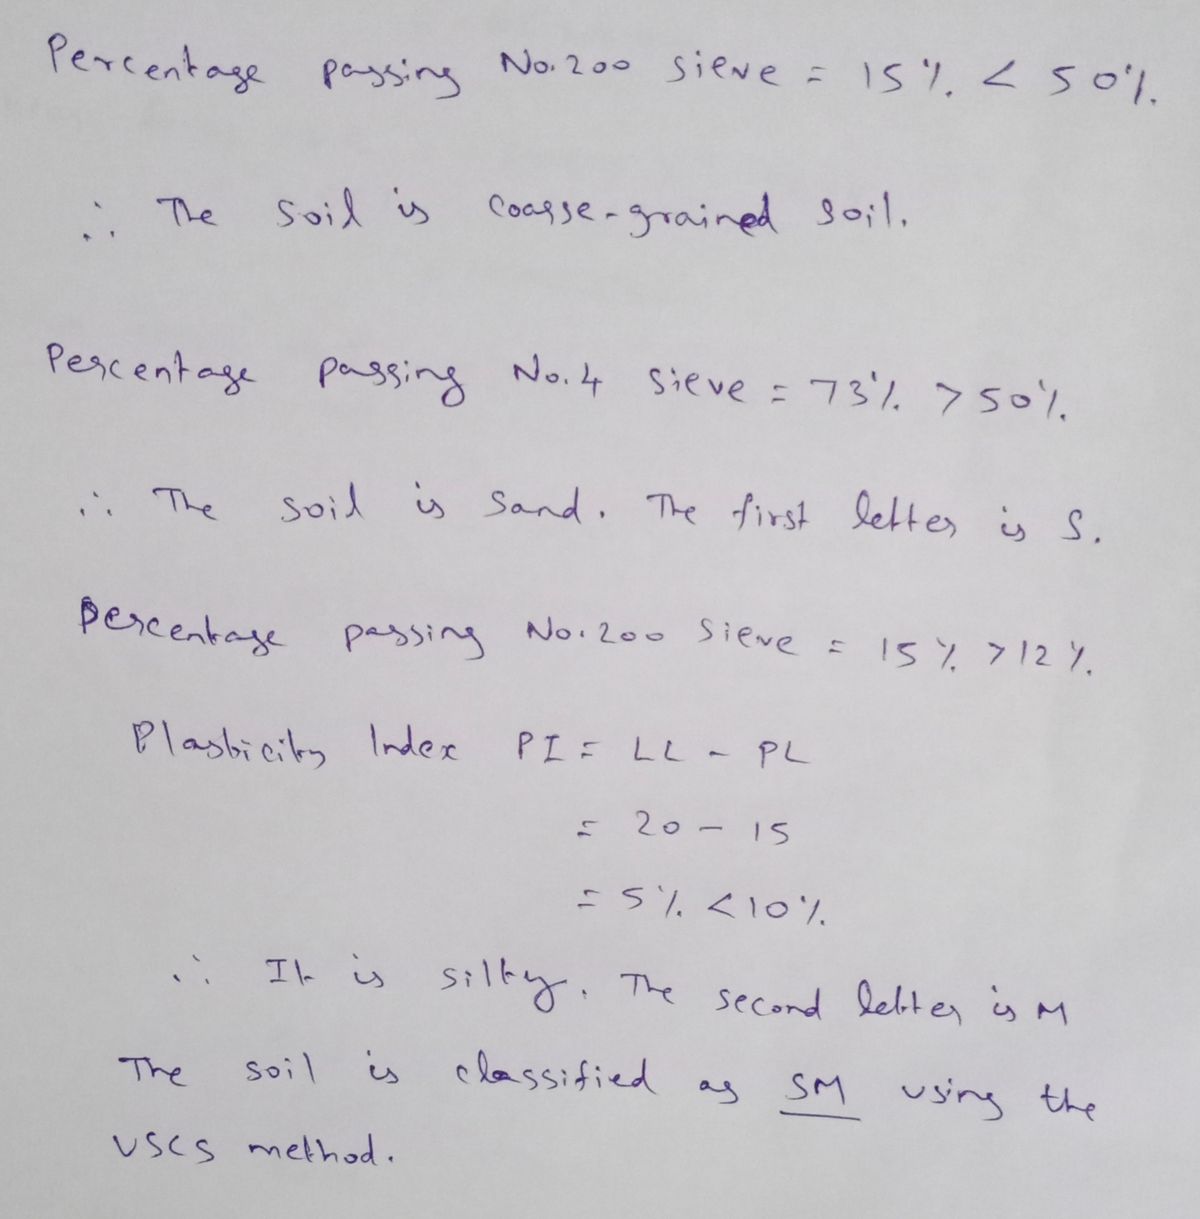 Percentage passing No. 200 sieve = 15% < 50%.
∴ The soil is coarse-grained soil.
Percentage passing No. 4 sieve = 73% > 50%.
∴ The soil is sand. The first letter is S.
Percentage passing No. 200 sieve = 15% > 12%.
Plasticity Index PI = LL - PL
= 20 - 15
= 5% < 10%.
∴ It is silty. The second letter is M
The soil is classified as SM using the
USCS method.